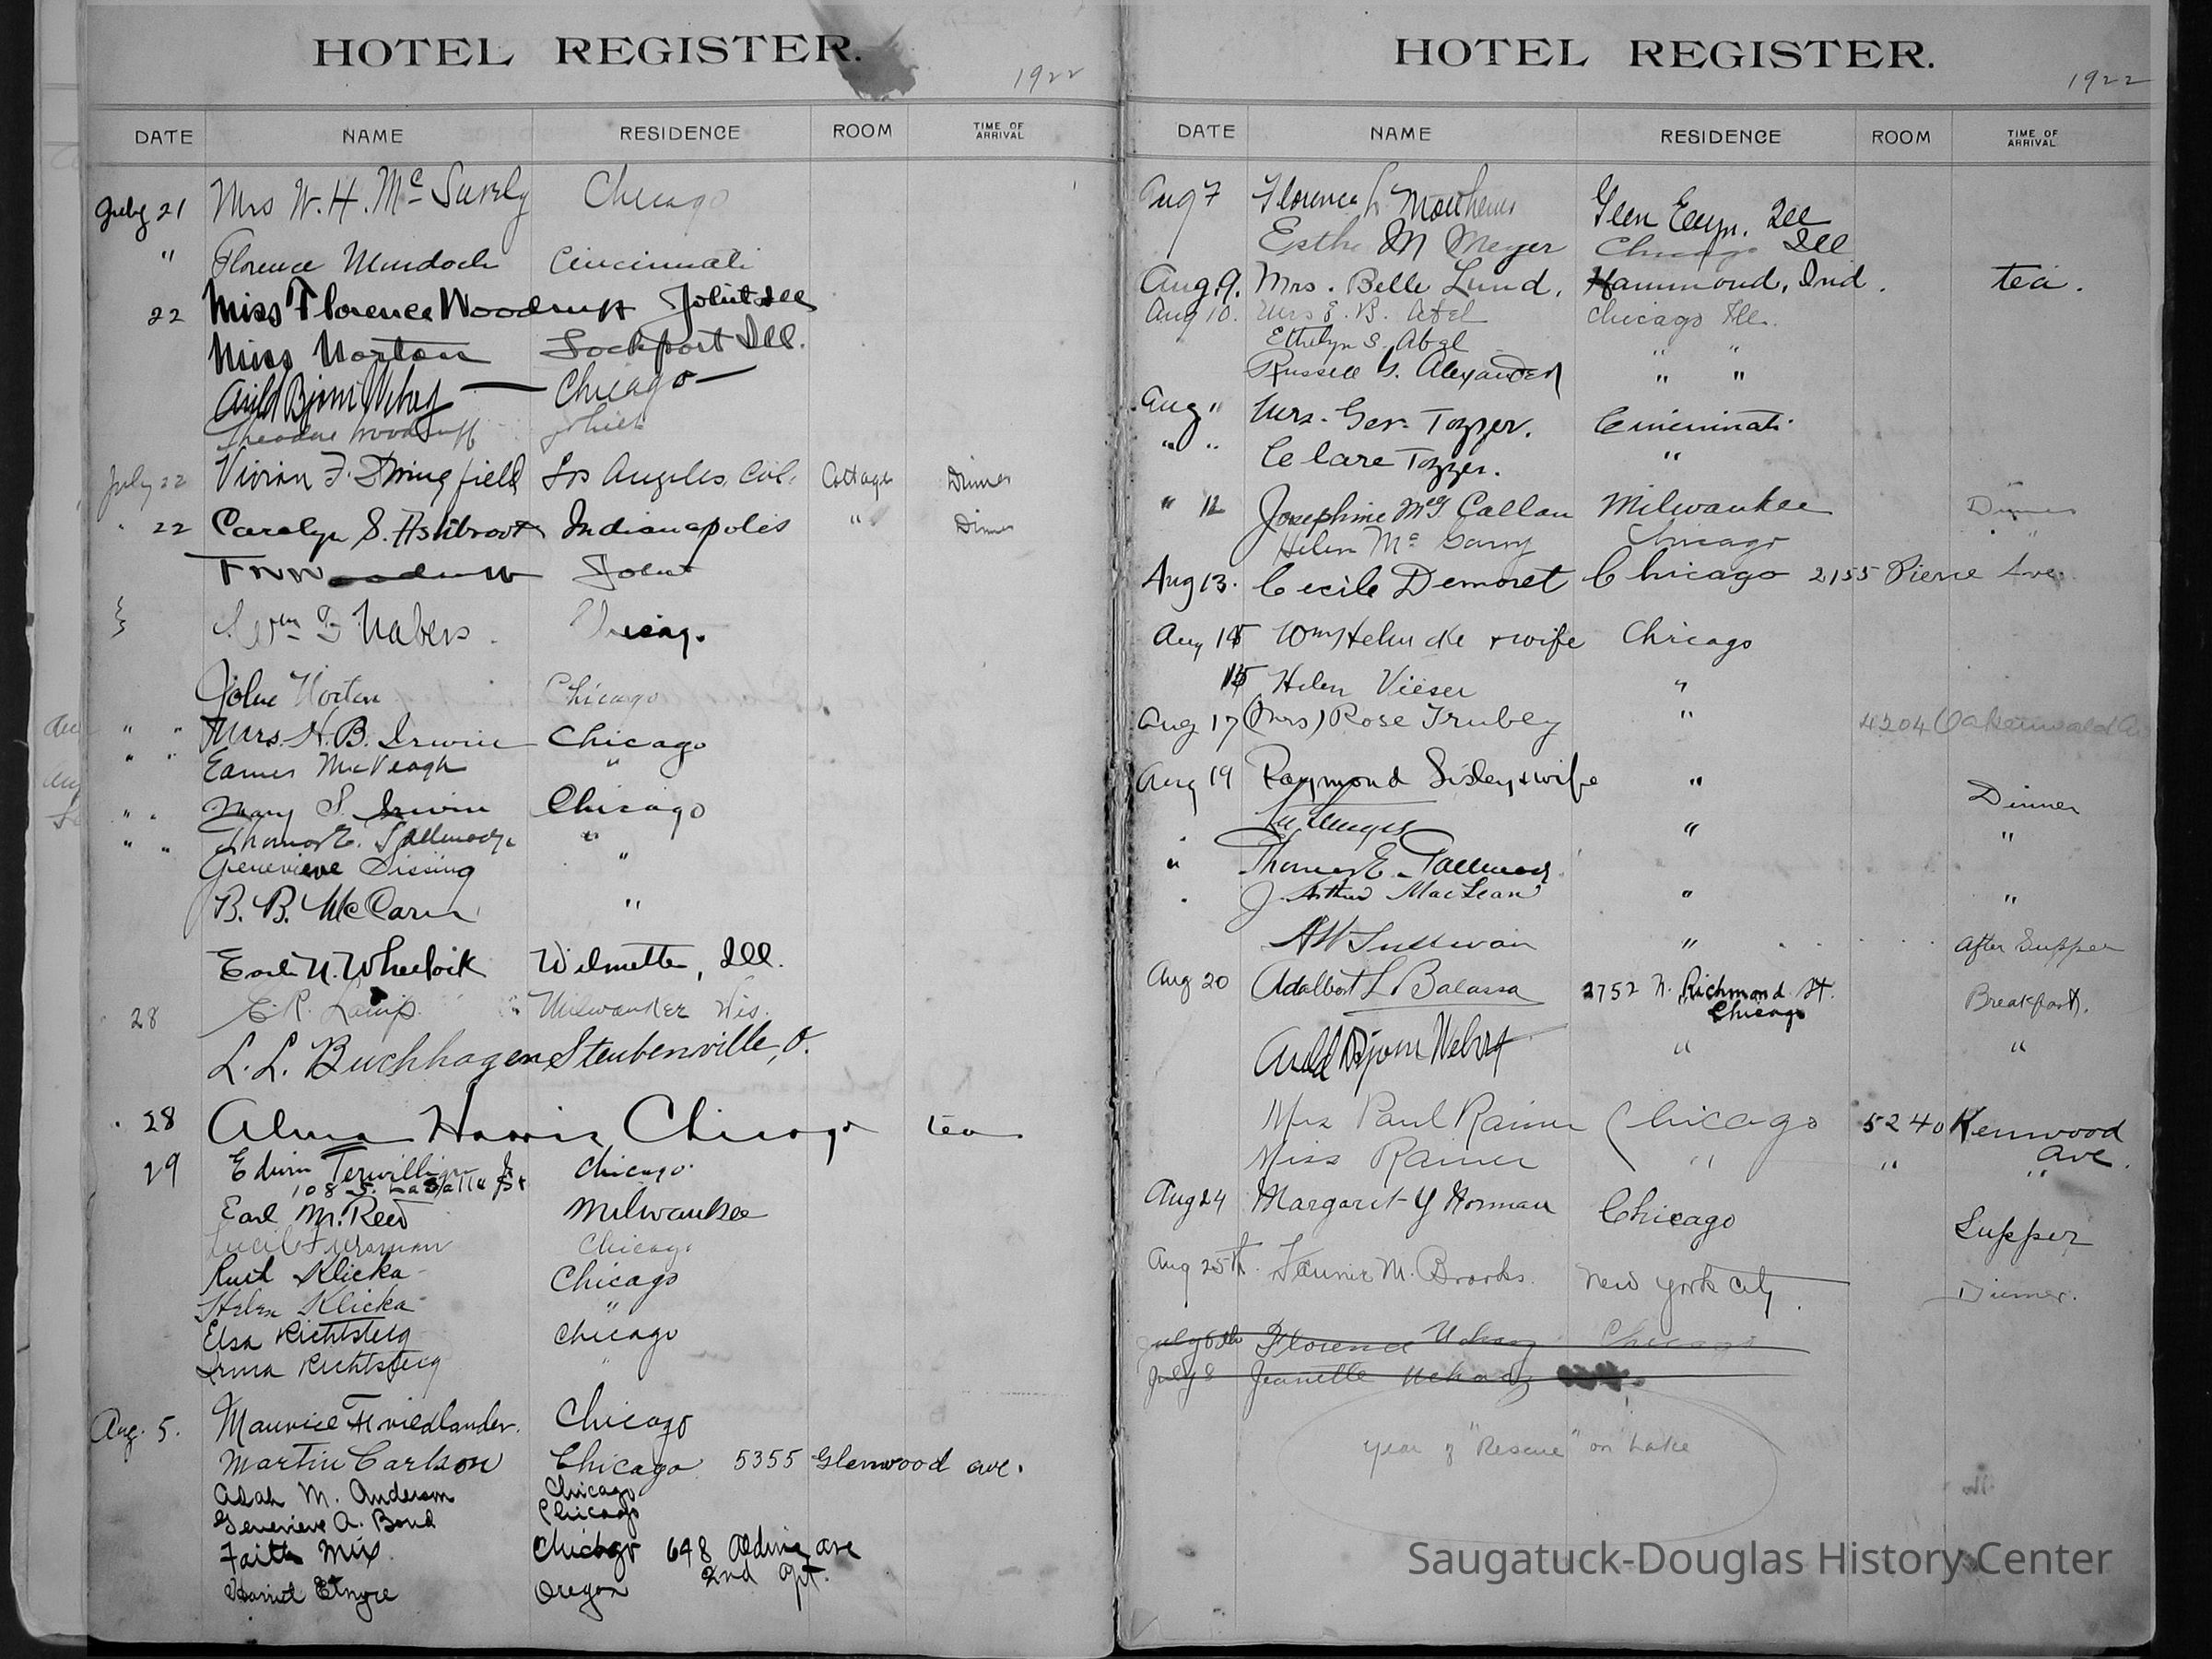 HOTEL REGISTER.
1922
DATE NAME RESIDENCE ROOM TIME OF ARRIVAL
July 21 Mrs W. H. Mc Surely Chicago
" Florence Murdoch Cincinnati
22 Miss Florence Woodruff Joliet Ill
Miss Norton Lockport Ill.
Chicago
Theodore Woodruff Joliet
July 22 Vivian F. Stringfield Los Angeles, Cal. Cottage Dinner
" 22 Carolyn S. Ashbrook Indianapolis " Dinner
F N Woodruff Joliet
Nabers Chicago
John Norton Chicago
" " Mrs. H. B. Irwin Chicago
" " Eames MacVeagh "
" " Mary S. Irwin Chicago
" " Thomas E. Tallmadge "
Genevieve Sissing "
B. B. McCarn "
Earl N. Wheelock Wilmette, Ill.
28 Milwaukee Wis.
L. L. Buchhagen Steubenville, O.
" 28 Alma Harris Chicago tea
29 Edwin Terwilliger Jr Chicago.
108 S. La Salle St
Earl M. Reed Milwaukee
Lucil Fursman Chicago
Ruth Klicka Chicago
Helen Klicka "
Elsa Richtsteig Chicago
Irma Richtsteig "
Aug. 5. Maurice Friedlander. Chicago
Martin Carlson Chicago 5355 Glenwood ave.
Adah M. Anderson Chicago
Genevieve A. Bond Chicago
Faith Mix Chicago 648 Aldine ave
2nd Apt.
Harriet Etnyre Oregon
HOTEL REGISTER.
1922
DATE NAME RESIDENCE ROOM TIME OF ARRIVAL
Aug 7 Florence L. Matthews Glen Ellyn. Ill
Esther M Meyer Chicago Ill
Aug 9. Mrs. Belle Lund. Hammond, Ind. tea.
Aug 10. Mrs E. B. Abel Chicago Ill.
Ethelyn S. Abel " "
Russell G. Alexander " "
Aug " Mrs. Geo. Tozzer. Cincinnati
" " Clare Tozzer. "
" 12 Josephine McG Callan Milwaukee Dinner
Helen Mc Garry Chicago "
Aug 13. Cecile Demoret Chicago 2155 Pierce Ave.
Aug 15 Wm Helmcke & wife Chicago
15 Helen Vieser "
Aug 17 (Mrs) Rose Trubey " 4204 Oakenwald Av
Aug 19 Raymond Sisley & wife " Dinner
" " "
" Thomas E. Tallmadge
" J. Arthur MacLean " "
A W Sullivan " After Supper
Aug 20 Adalbert L Balassa 2752 N. Richmond St. Breakfast.
Chicago
" "
Mrs Paul Rainier Chicago 5240 Kenwood
Ave.
Miss Rainier " " "
Aug 24 Margaret Y Norman Chicago Supper
Aug 25th. Fannie M. Brooks. New York City. Dinner.
July 6th Florence Chicago
July 8 Jeanette
year of "Rescue" on Lake
Saugatuck-Douglas History Center